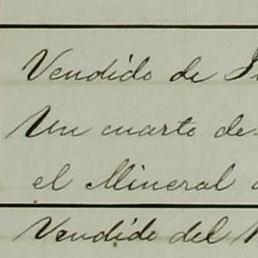 Vendido de
Un cuarto de
el Mineral
Vendido del